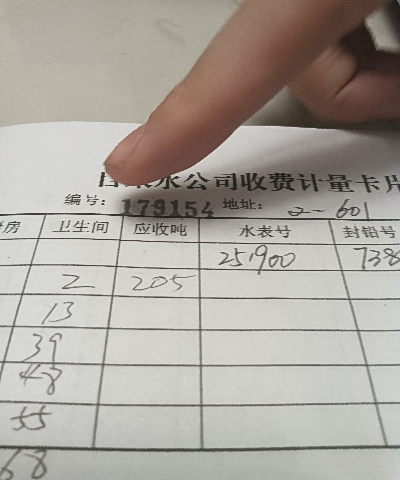 水公司收费计量卡片
编号: 179154 地址: 2-601
房 卫生间 应收吨 水表号 封铅号
25900 738
2 205
13
39
48
55
68